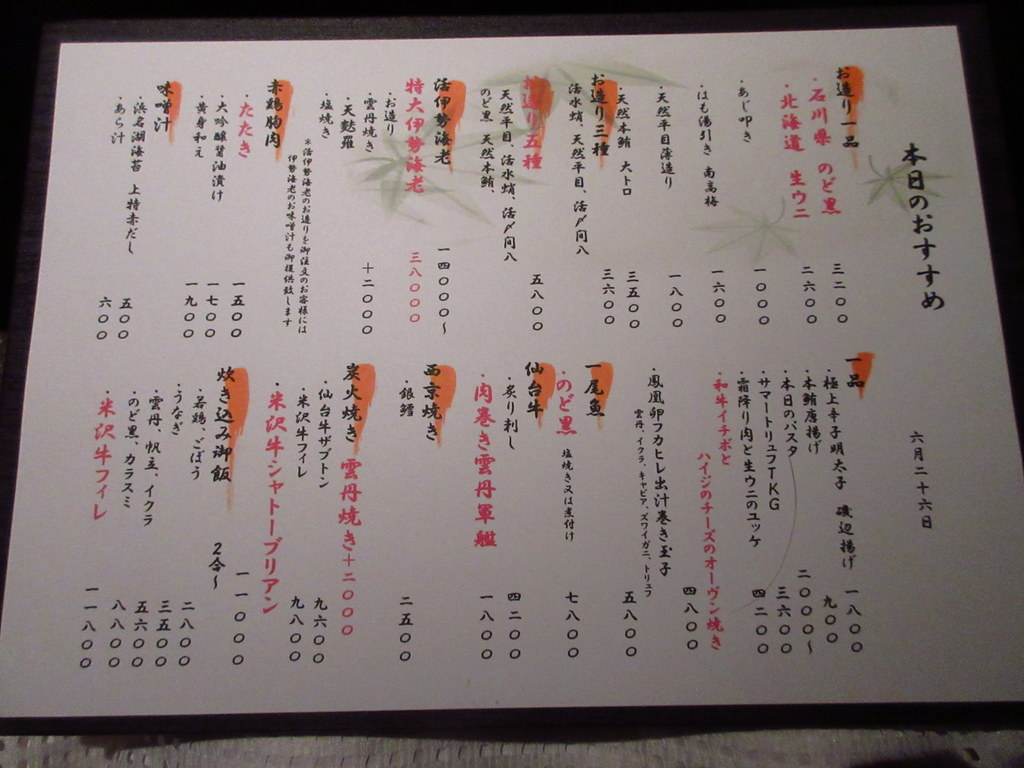 本日のおすすめ
六月二十六日
お造り一品
・石川県 のど黒 三二〇〇
・北海道 生ウニ 二六〇〇
・あじ叩き 一〇〇〇
・はも湯引き 南高梅 一六〇〇
・天然平目薄造り 一八〇〇
・天然本鮪 大トロ 三五〇〇
お造り三種 三六〇〇
活水蛸、天然平目、活〆間八
お造り五種 五八〇〇
天然平目、活水蛸、活〆間八
のど黒 天然本鮪、
活伊勢海老 一四〇〇〇〜
特大伊勢海老 三八〇〇〇
・お造り
・雲丹焼き 十二〇〇〇
・天麩羅
・塩焼き
※活伊勢海老のお造りを御注文のお客様には
伊勢海老のお味噌汁も御提供致します
赤鶏胸肉
・たたき 一五〇〇
・大吟醸醤油漬け 一七〇〇
・黄身和え 一九〇〇
味噌汁
・浜名湖海苔 上特赤だし 五〇〇
・あら汁 六〇〇
一品
・極上辛子明太子 磯辺揚げ 一八〇〇
・本鮪唐揚げ 九〇〇
・本日のパスタ 二〇〇〇〜
・サマートリュフTKG 三六〇〇
・霜降り肉と生ウニのユッケ 四二〇〇
・和牛イチボと
ハイジのチーズのオーヴン焼き 四八〇〇
・鳳凰卵フカヒレ出汁巻き玉子 五八〇〇
雲丹、イクラ、キャビア、ズワイガニ、トリュフ
一尾魚
・のど黒 塩焼き又は煮付け 七八〇〇
仙台牛
・炙り刺し 四二〇〇
・肉巻き雲丹軍艦 一八〇〇
西京焼き
・銀鱈 二五〇〇
炭火焼き 雲丹焼き十二〇〇〇
・仙台牛ザブトン 九六〇〇
・米沢牛フィレ 九八〇〇
・米沢牛シャトーブリアン 一一〇〇〇
炊き込み御飯 2合〜
・若鶏、ごぼう 二八〇〇
・うなぎ 三五〇〇
・雲丹、帆立、イクラ 五六〇〇
・のど黒、カラスミ 八八〇〇
・米沢牛フィレ 一一八〇〇